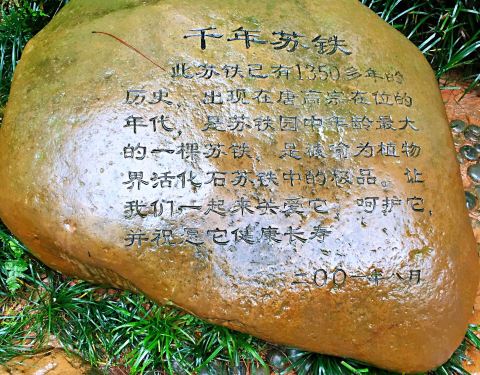 千年苏铁
此苏铁已有1350多年的
历史，出现在唐高宗在位的
年代，是苏铁园中年龄最大
的一棵苏铁，是被喻为植物
界活化石苏铁中的极品。让
我们一起来关爱它，呵护它，
并祝愿它健康长寿
二〇〇一年八月